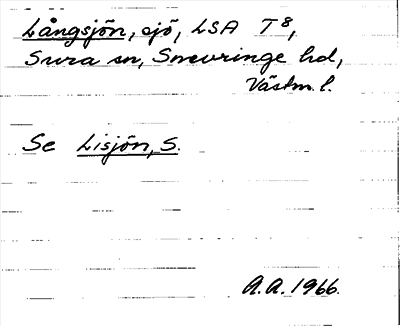 Långsjön, sjö, LSA T8,
Sura sn, Snevringe hd,
Västm. l.
Se Lisjön, S.
A.A. 1966.